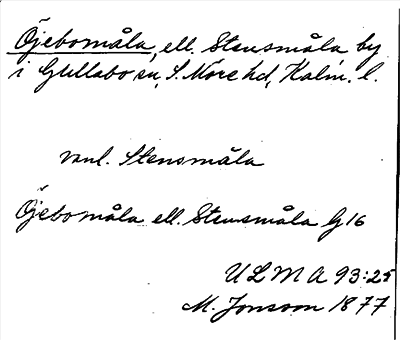 Öjebomåla, ell. Stensmåla by
i Gullabo sn, S. Möre hd, Kalm. l.
vanl. Stensmåla
Öjebomåla ell. Stensmåla G 16
ULMA 93:25
M. Jonsson 1877